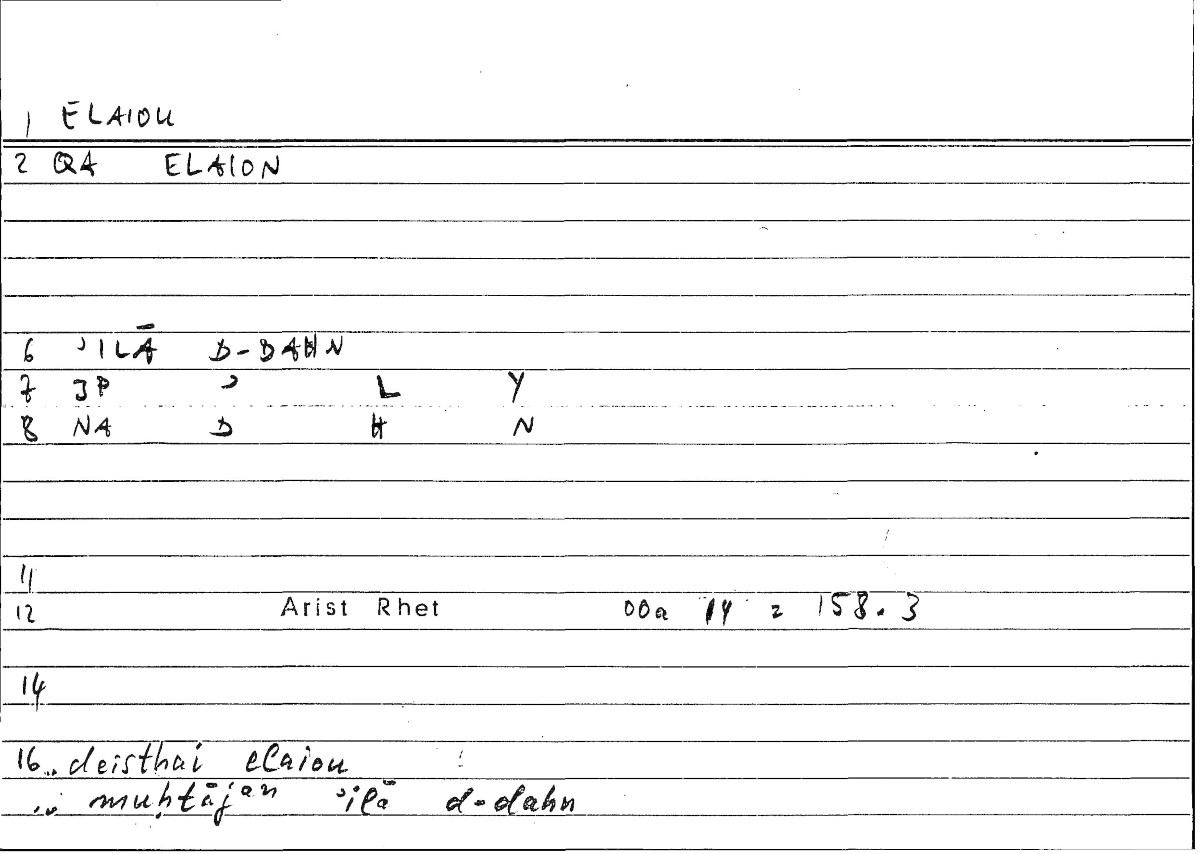 1 ELAIOU
2 QA ELAION
6 ʾILĀ D-DAHN
7 JP ʾ L Y
8 NA D H N
11
12 Arist Rhet 00a 14 = 158.3
14
16 .. deisthai elaiou
.. muḥtājan ʾilā d-dahn